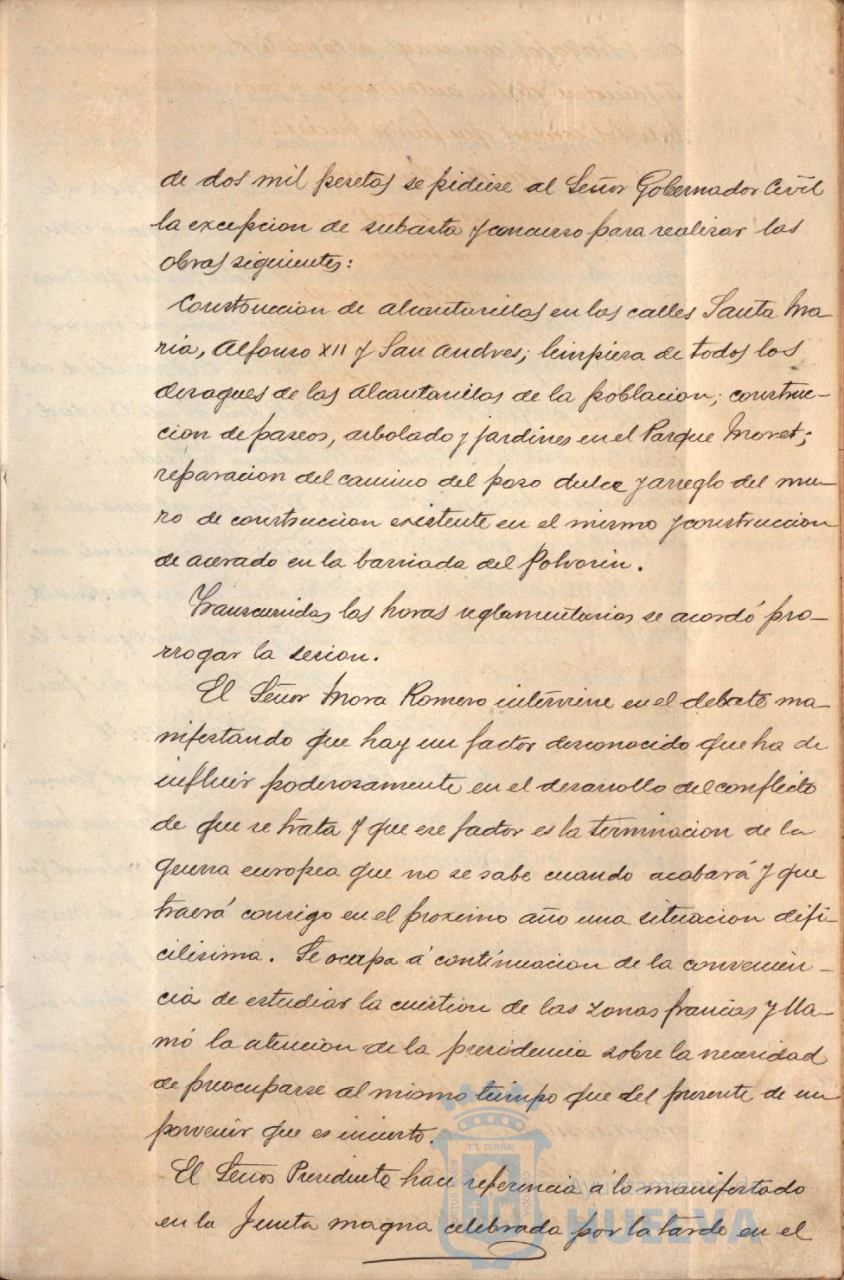 de dos mil pesetas se pidiese al Señor Gobernador Civil
la excepcion de subasta y concurso para realizar las
obras siguientes:
Construccion de alcantarillas en las calles Santa Ma-
ria, Alfonso XII y San Andres; limpieza de todos los
desagues de las alcantarillas de la poblacion; construc-
cion de paseos, arbolado y jardines en el Parque Moret;
reparacion del camino del pozo dulce y arreglo del mu-
ro de construccion existente en el mismo y construccion
de acerado en la barriada del Polvorin.
Transcurridas las horas reglamentarias se acordó pro-
rrogar la sesion.
El Señor Mora Romero interviene en el debate ma-
nifestando que hay un factor desconocido que ha de
influir poderosamente en el desarrollo del conflicto
de que se trata y que ese factor es la terminacion de la
guerra europea que no se sabe cuando acabará y que
traerá consigo en el proximo año una situacion difi-
cilisima. Se ocupa á continuacion de la convenien-
cia de estudiar la cuestion de las zonas francas y lla-
mó la atencion de la presidencia sobre la necesidad
de preocuparse al mismo tiempo que del presente de un
porvenir que es incierto.
El Señor Presidente hace referencia á lo manifestado
en la Junta magna celebrada por la tarde en el
Ayuntamiento de
HUELVA